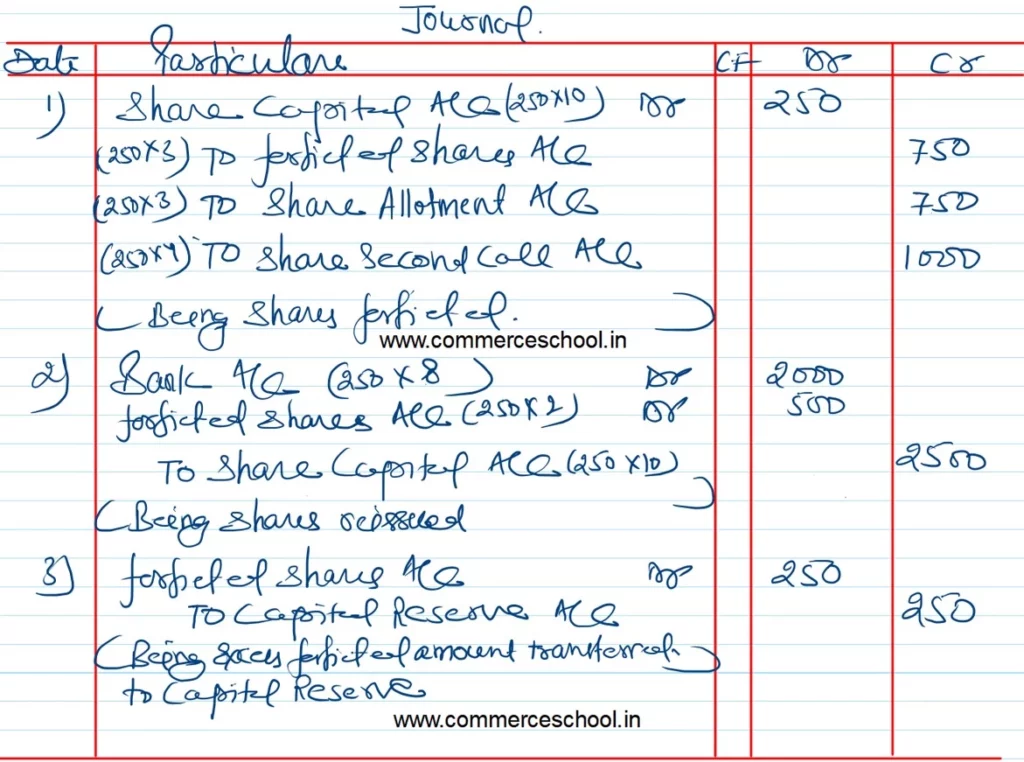 Journal.
Date Particulars CF Dr Cr
1) Share Capital A/c (250×10) Dr 250
(250×3) To forfieted Shares A/c 750
(250×3) To Share Allotment A/c 750
(250×4) To Share Second Call A/c 1000
(Being Shares forfieted. )
www.commerceschool.in
2) Bank A/c (250×8) Dr 2000
forfieted Shares A/c (250×2) Dr 500
To Share Capital A/c (250×10) 2500
(Being Shares reissued )
3) forfieted Shares A/c Dr 250
To Capital Reserve A/c 250
(Being Excess forfieted amount transferred )
to Capital Reserve
www.commerceschool.in